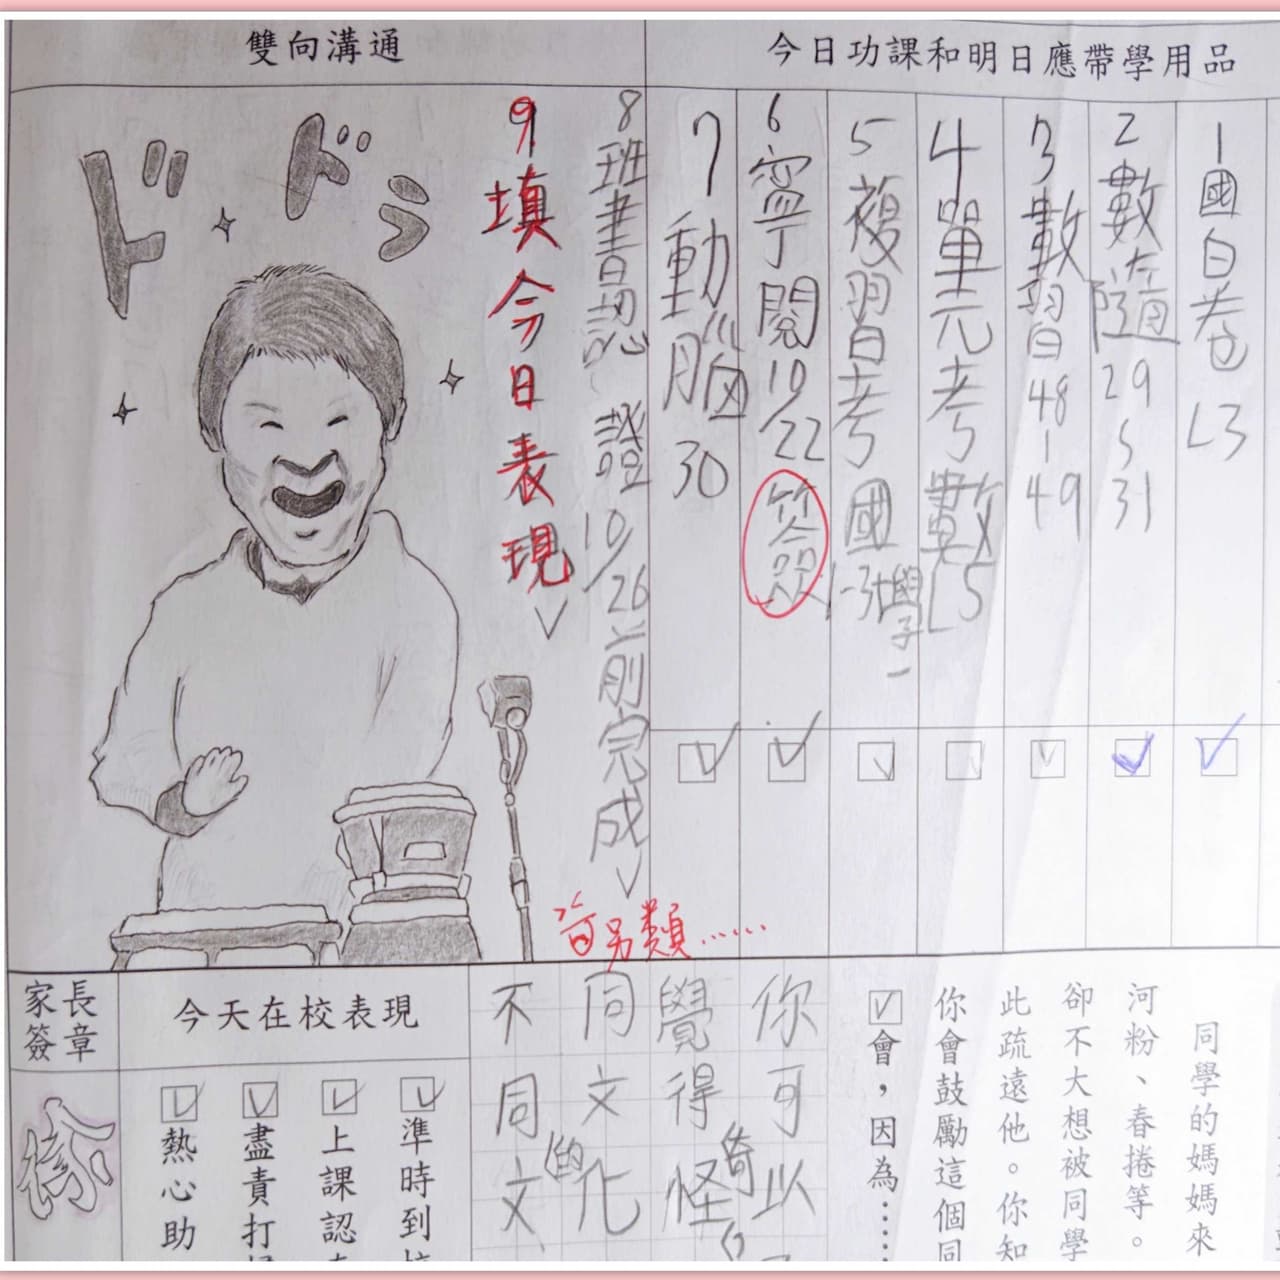 雙向溝通
今日功課和明日應帶學用品
1國白卷L3
2數隨29 31
3數習48-49
4單元考數L5
5複習考國1-3學一
6寧閱10/22簽
7動腦30
8班書認證10/26前完成
9填今日表現
ドドラ
首另類……
家長簽章
今天在校表現
準時到
上課認
盡責打
熱心助
同學的媽媽來
河粉、春捲等。
卻不大想被同學
此疏遠他。你知
你會鼓勵這個同
會，因為……
你可以
覺得奇怪
同文化的
不同文